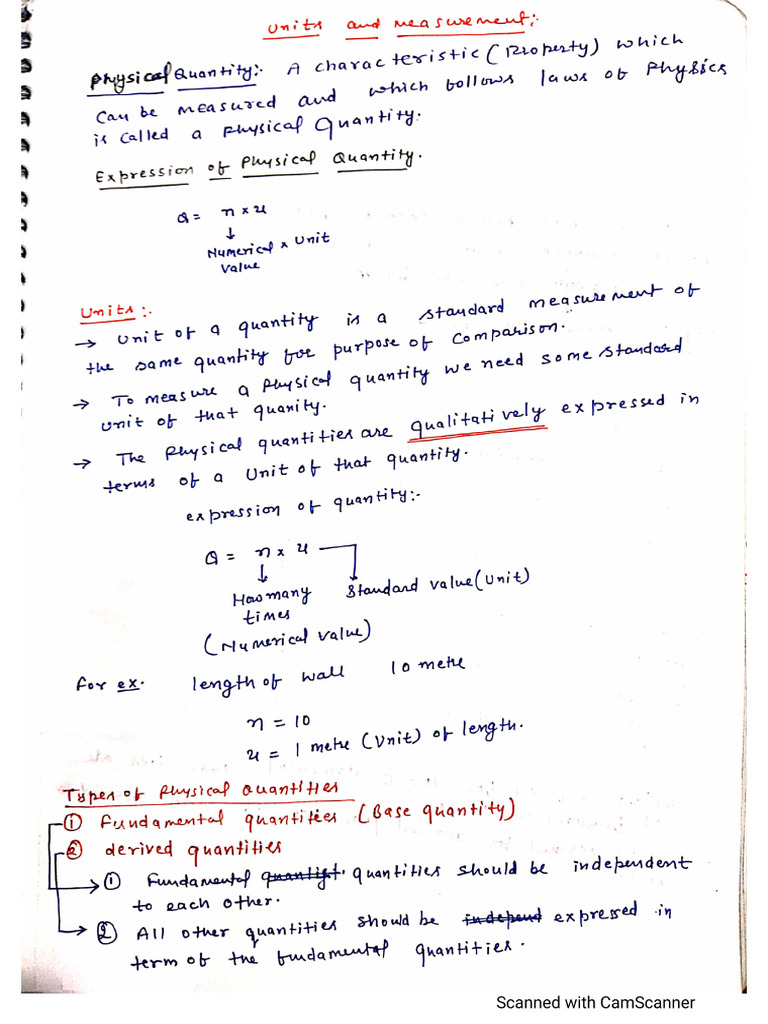 Units and Measurement:-
Physical Quantity:- A characteristic (Property) which
can be measured and which follows laws of Physics
is called a Physical Quantity.
Expression of Physical Quantity.
Q = n × u
↓
Numerical × Unit
value
Units:-
→ Unit of a quantity is a standard measurement of
the same quantity for purpose of comparison.
→ To measure a Physical quantity we need some standard
unit of that quanity.
→ The Physical quantities are qualitatively expressed in
terms of a Unit of that quantity.
expression of quantity:-
Q = n × u
↓
How many Standard value (Unit)
times
(Numerical value)
For ex. length of wall 10 metre
n = 10
u = 1 metre (Unit) of length.
Types of Physical Quantities
① Fundamental quantities (Base quantity)
② derived quantities
→ ① Fundamental quantist. quantities should be independent
to each other.
→ ② All other quantities should be independ expressed in
term of the fundamental quantities.
Scanned with CamScanner